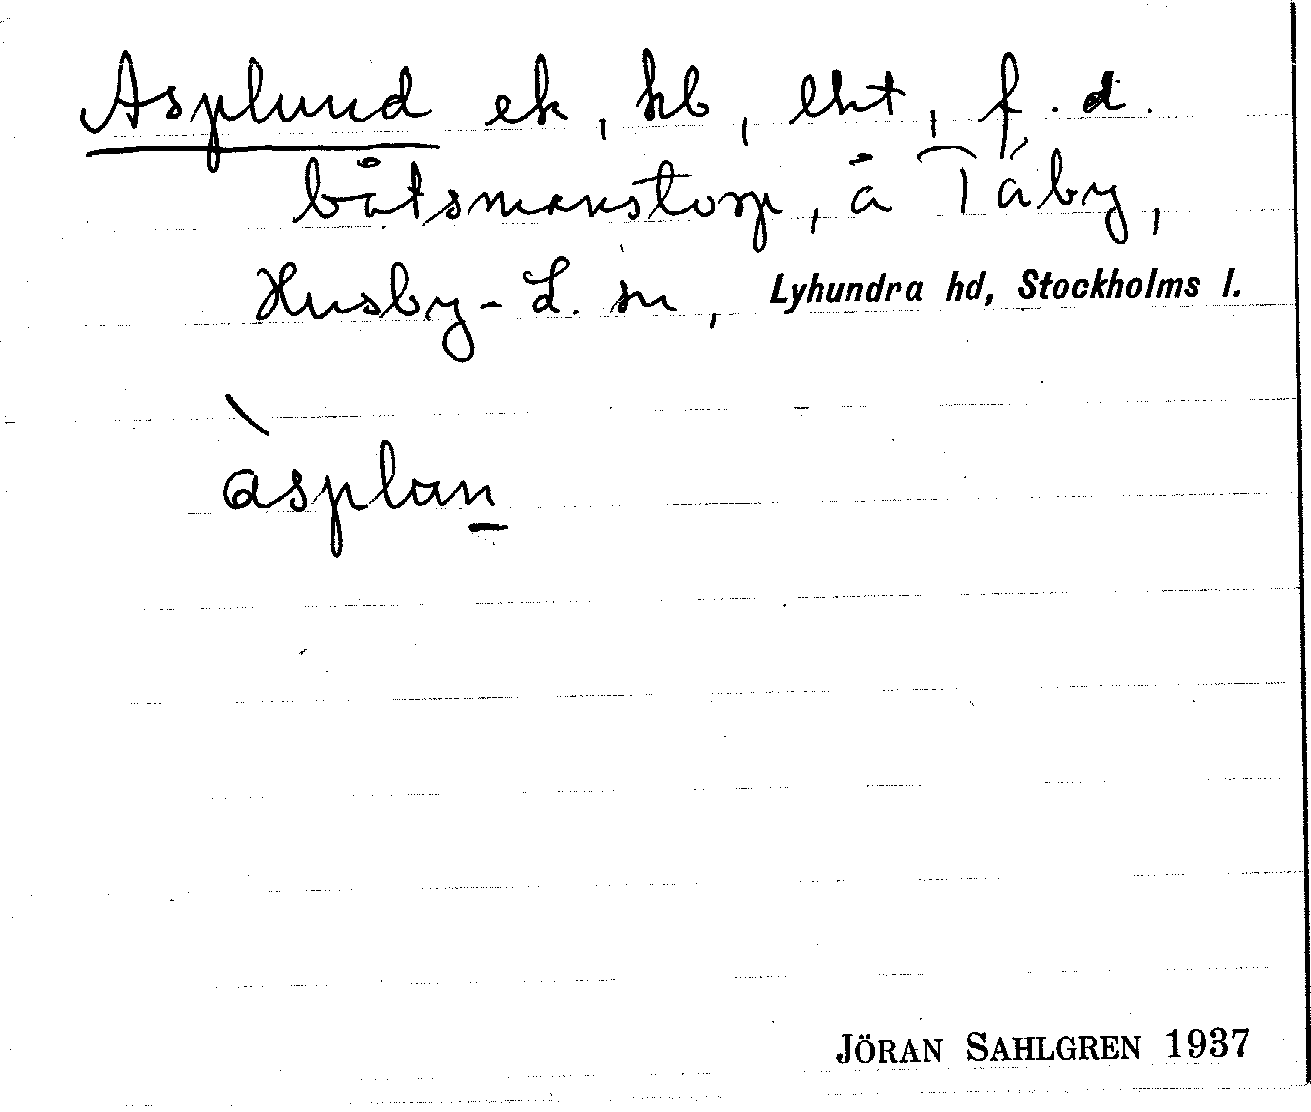 Asplund ek, hb, lht, f.d.
båtsmanstorp, å Täby,
Husby-L. sn, Lyhundra hd, Stockholms l.
àsplan
JÖRAN SAHLGREN 1937